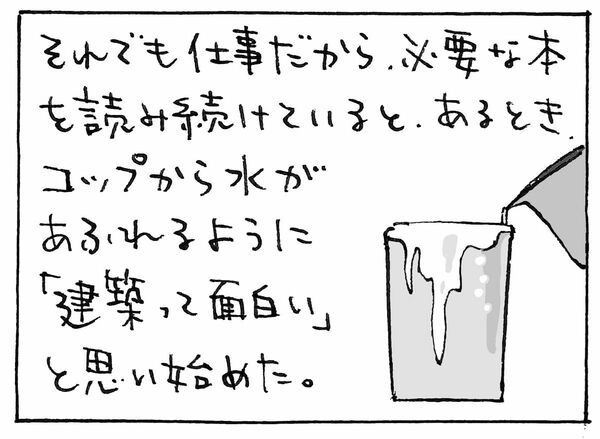 それでも仕事だから、必要な本
を読み続けていると、あるとき、
コップから水が
あふれるように
「建築って面白い」
と思い始めた。